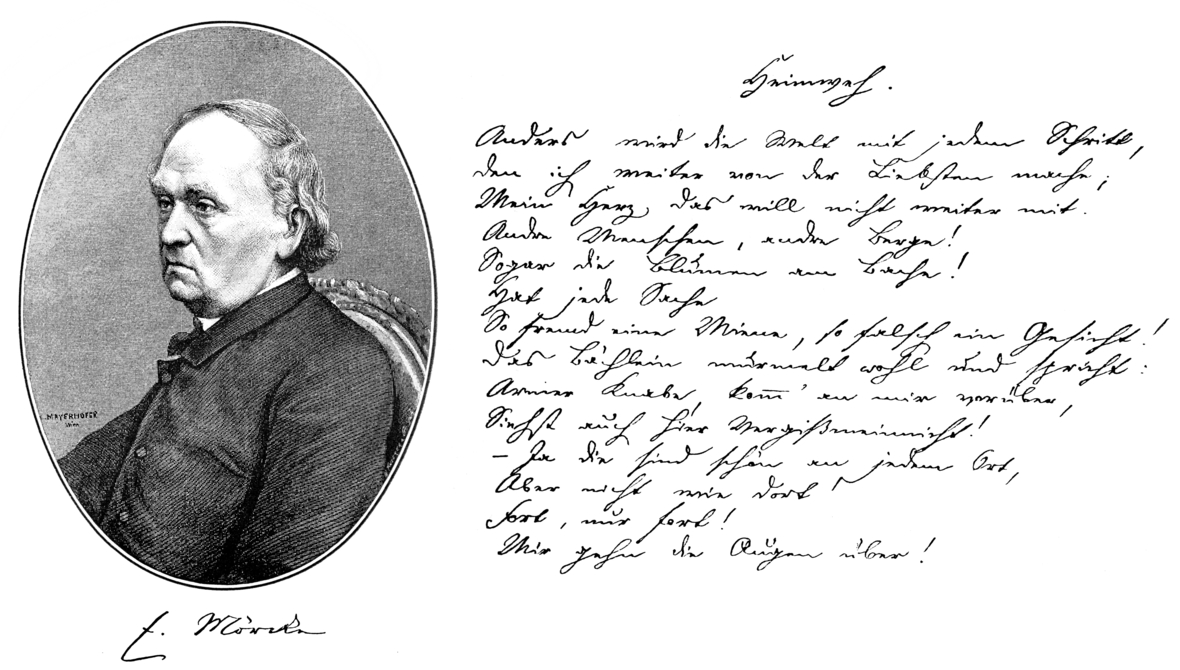 Heimweh.
Anders wird die Welt mit jedem Schritt,
den ich weiter von der Liebsten mache;
Mein Herz, das will nicht weiter mit.
Andre Menschen, andre Berge!
Sogar die Blumen am Bache!
Hat jede Sache
So fremd eine Miene, so falsch ein Gesicht!
Das Bächlein murmelt wohl und spricht:
Armer Knabe, kom̅' an mir vorüber,
Siehst auch hier Vergißmeinnicht!
– Ja die sind schön an jedem Ort,
Aber nicht wie dort!
Fort, nur fort!
Mir gehn die Augen über!
L. MAYERHOFER
E. Mörike